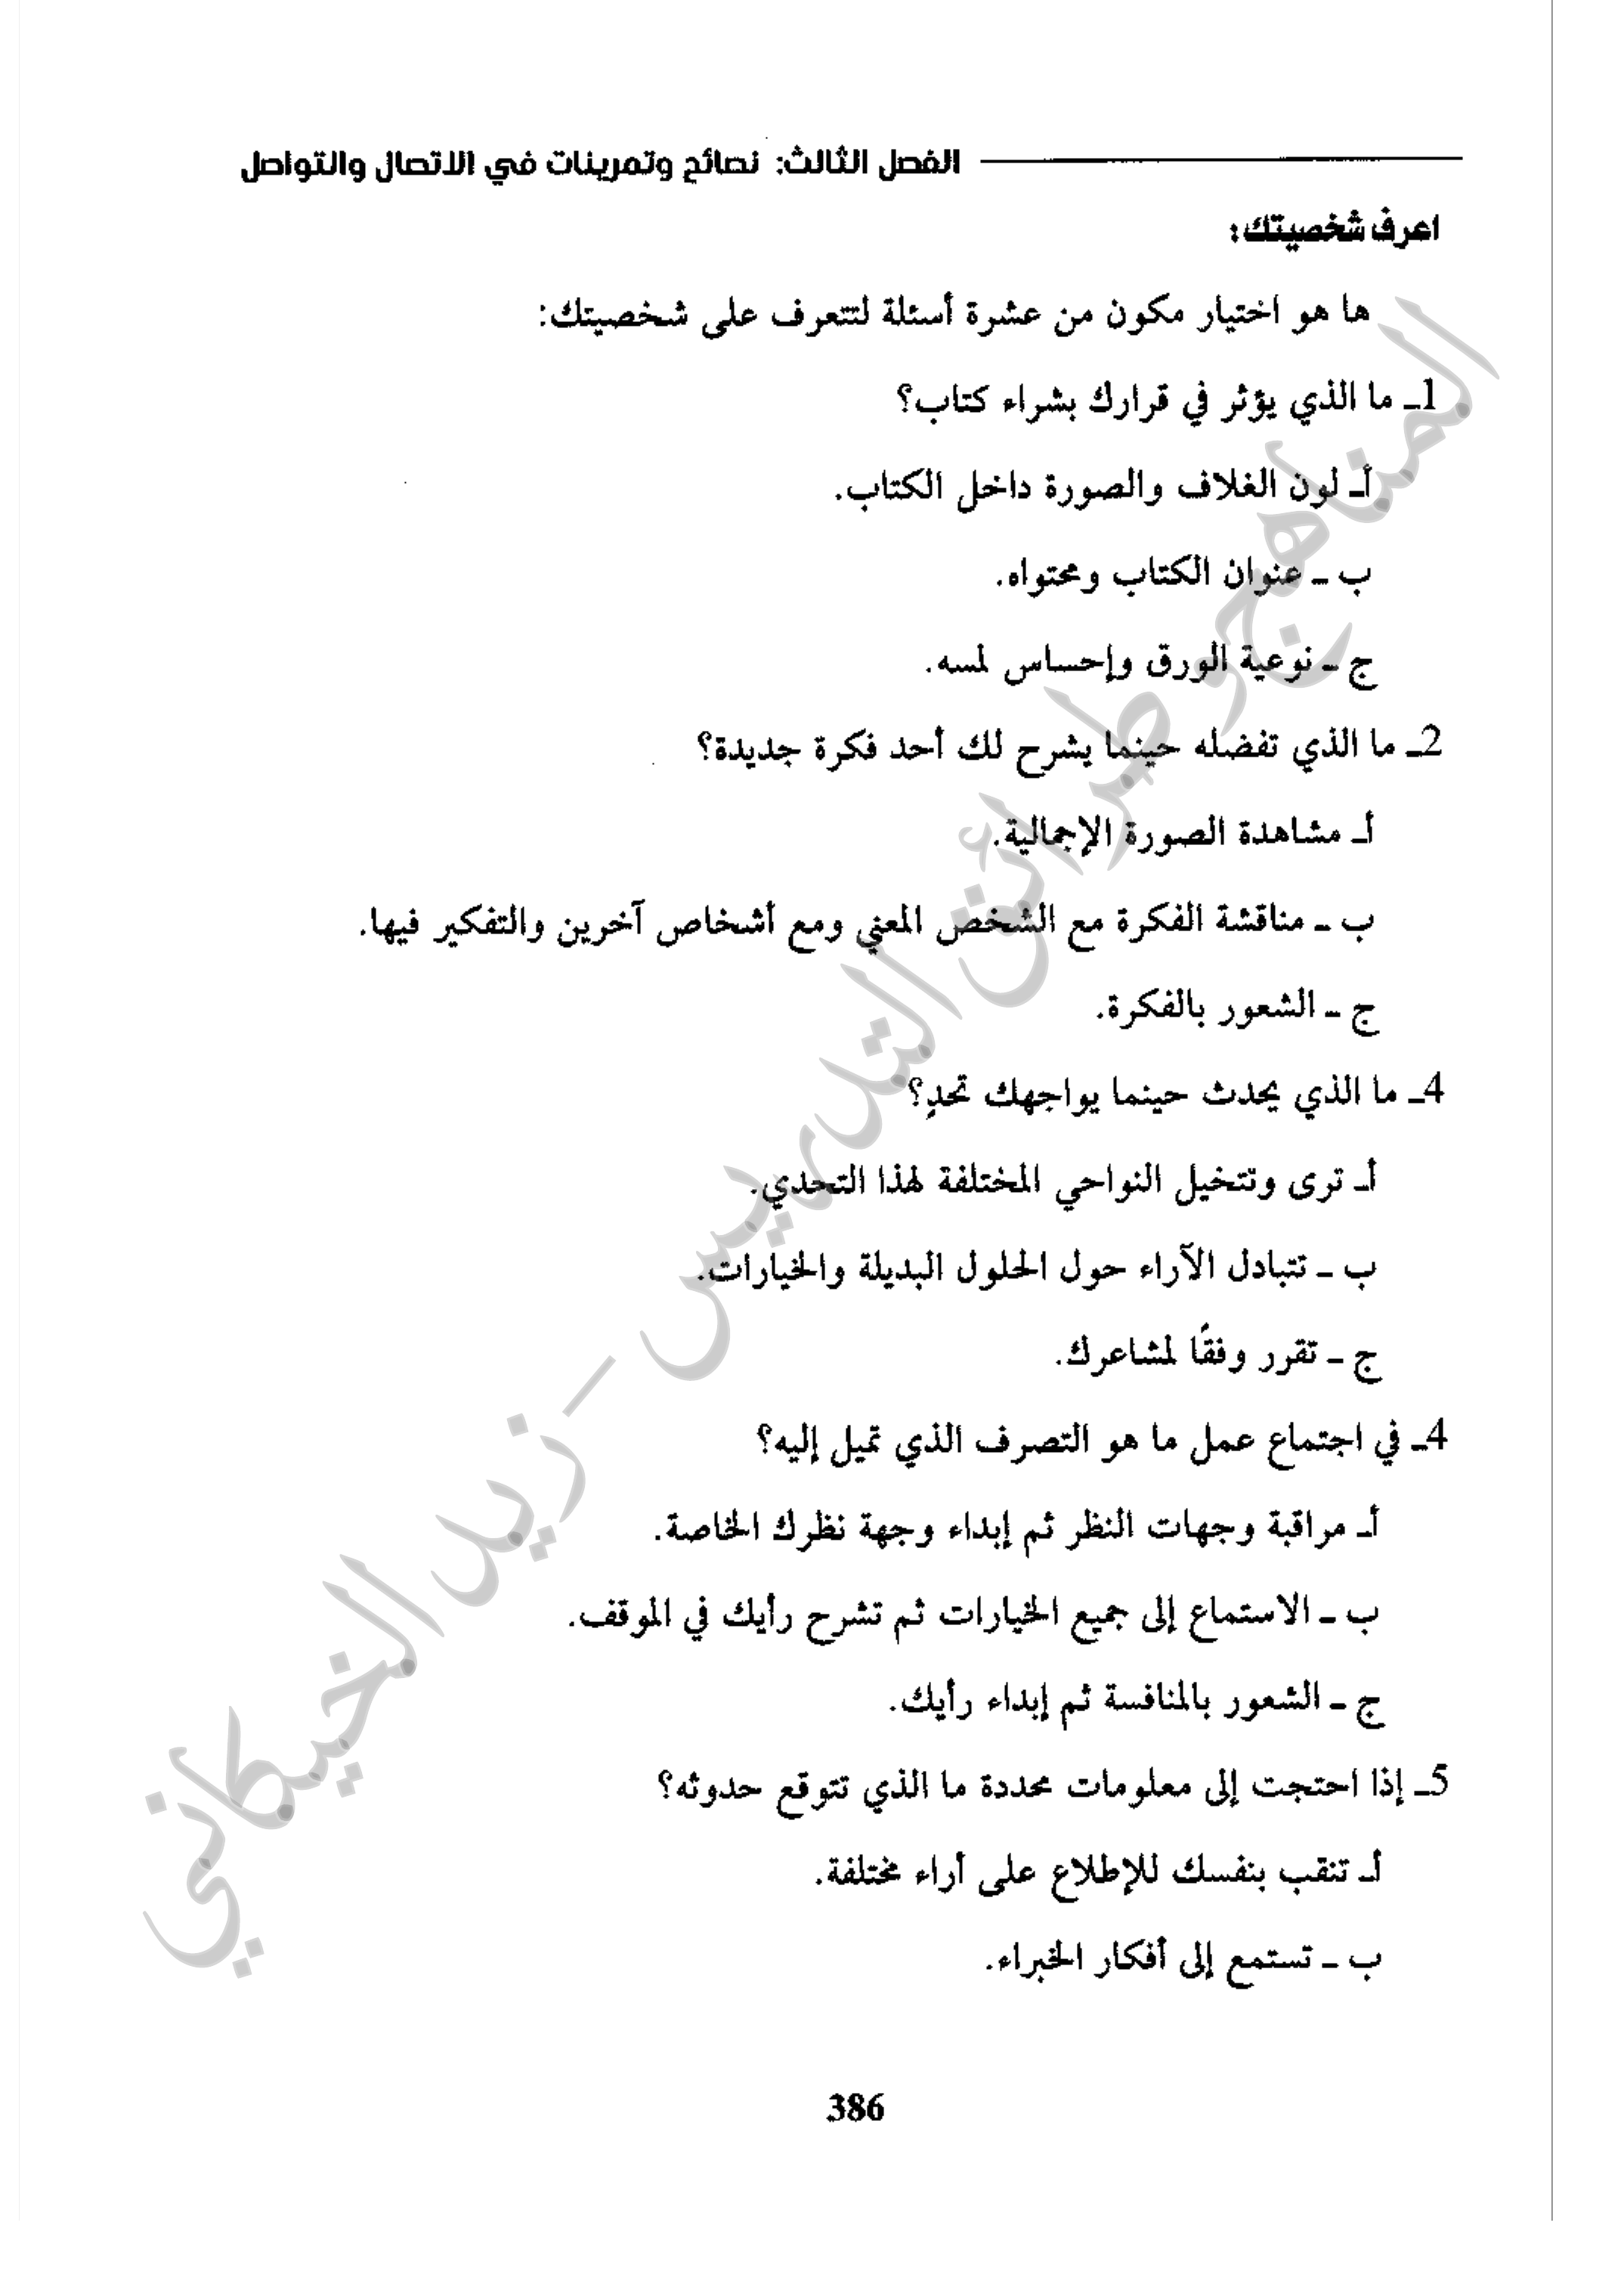 الفصل الثالث: نصائح وتمرينات في الاتصال والتواصل
اعرف شخصيتك:
ها هو اختيار مكون من عشرة أسئلة لتتعرف على شخصيتك:
1ـ ما الذي يؤثر في قرارك بشراء كتاب؟
أـ لون الغلاف والصورة داخل الكتاب.
ب ـ عنوان الكتاب ومحتواه.
ج ـ نوعية الورق وإحساس لمسه.
2ـ ما الذي تفضله حينما يشرح لك أحد فكرة جديدة؟
أـ مشاهدة الصورة الإجمالية.
ب ـ مناقشة الفكرة مع الشخص المعني ومع أشخاص آخرين والتفكير فيها.
ج ـ الشعور بالفكرة.
4ـ ما الذي يحدث حينما يواجهك تحدٍ؟
أـ ترى وتتخيل النواحي المختلفة لهذا التحدي.
ب ـ تتبادل الآراء حول الحلول البديلة والخيارات.
ج ـ تقرر وفقًا لمشاعرك.
4ـ في اجتماع عمل ما هو التصرف الذي تميل إليه؟
أـ مراقبة وجهات النظر ثم إبداء وجهة نظرك الخاصة.
ب ـ الاستماع إلى جميع الخيارات ثم تشرح رأيك في الموقف.
ج ـ الشعور بالمنافسة ثم إبداء رأيك.
5ـ إذا احتجت إلى معلومات محددة ما الذي تتوقع حدوثه؟
أـ تنقب بنفسك للإطلاع على أراء مختلفة.
ب ـ تستمع إلى أفكار الخبراء.
386
المناهج وطرائق التدريس - زيد الخيكاني